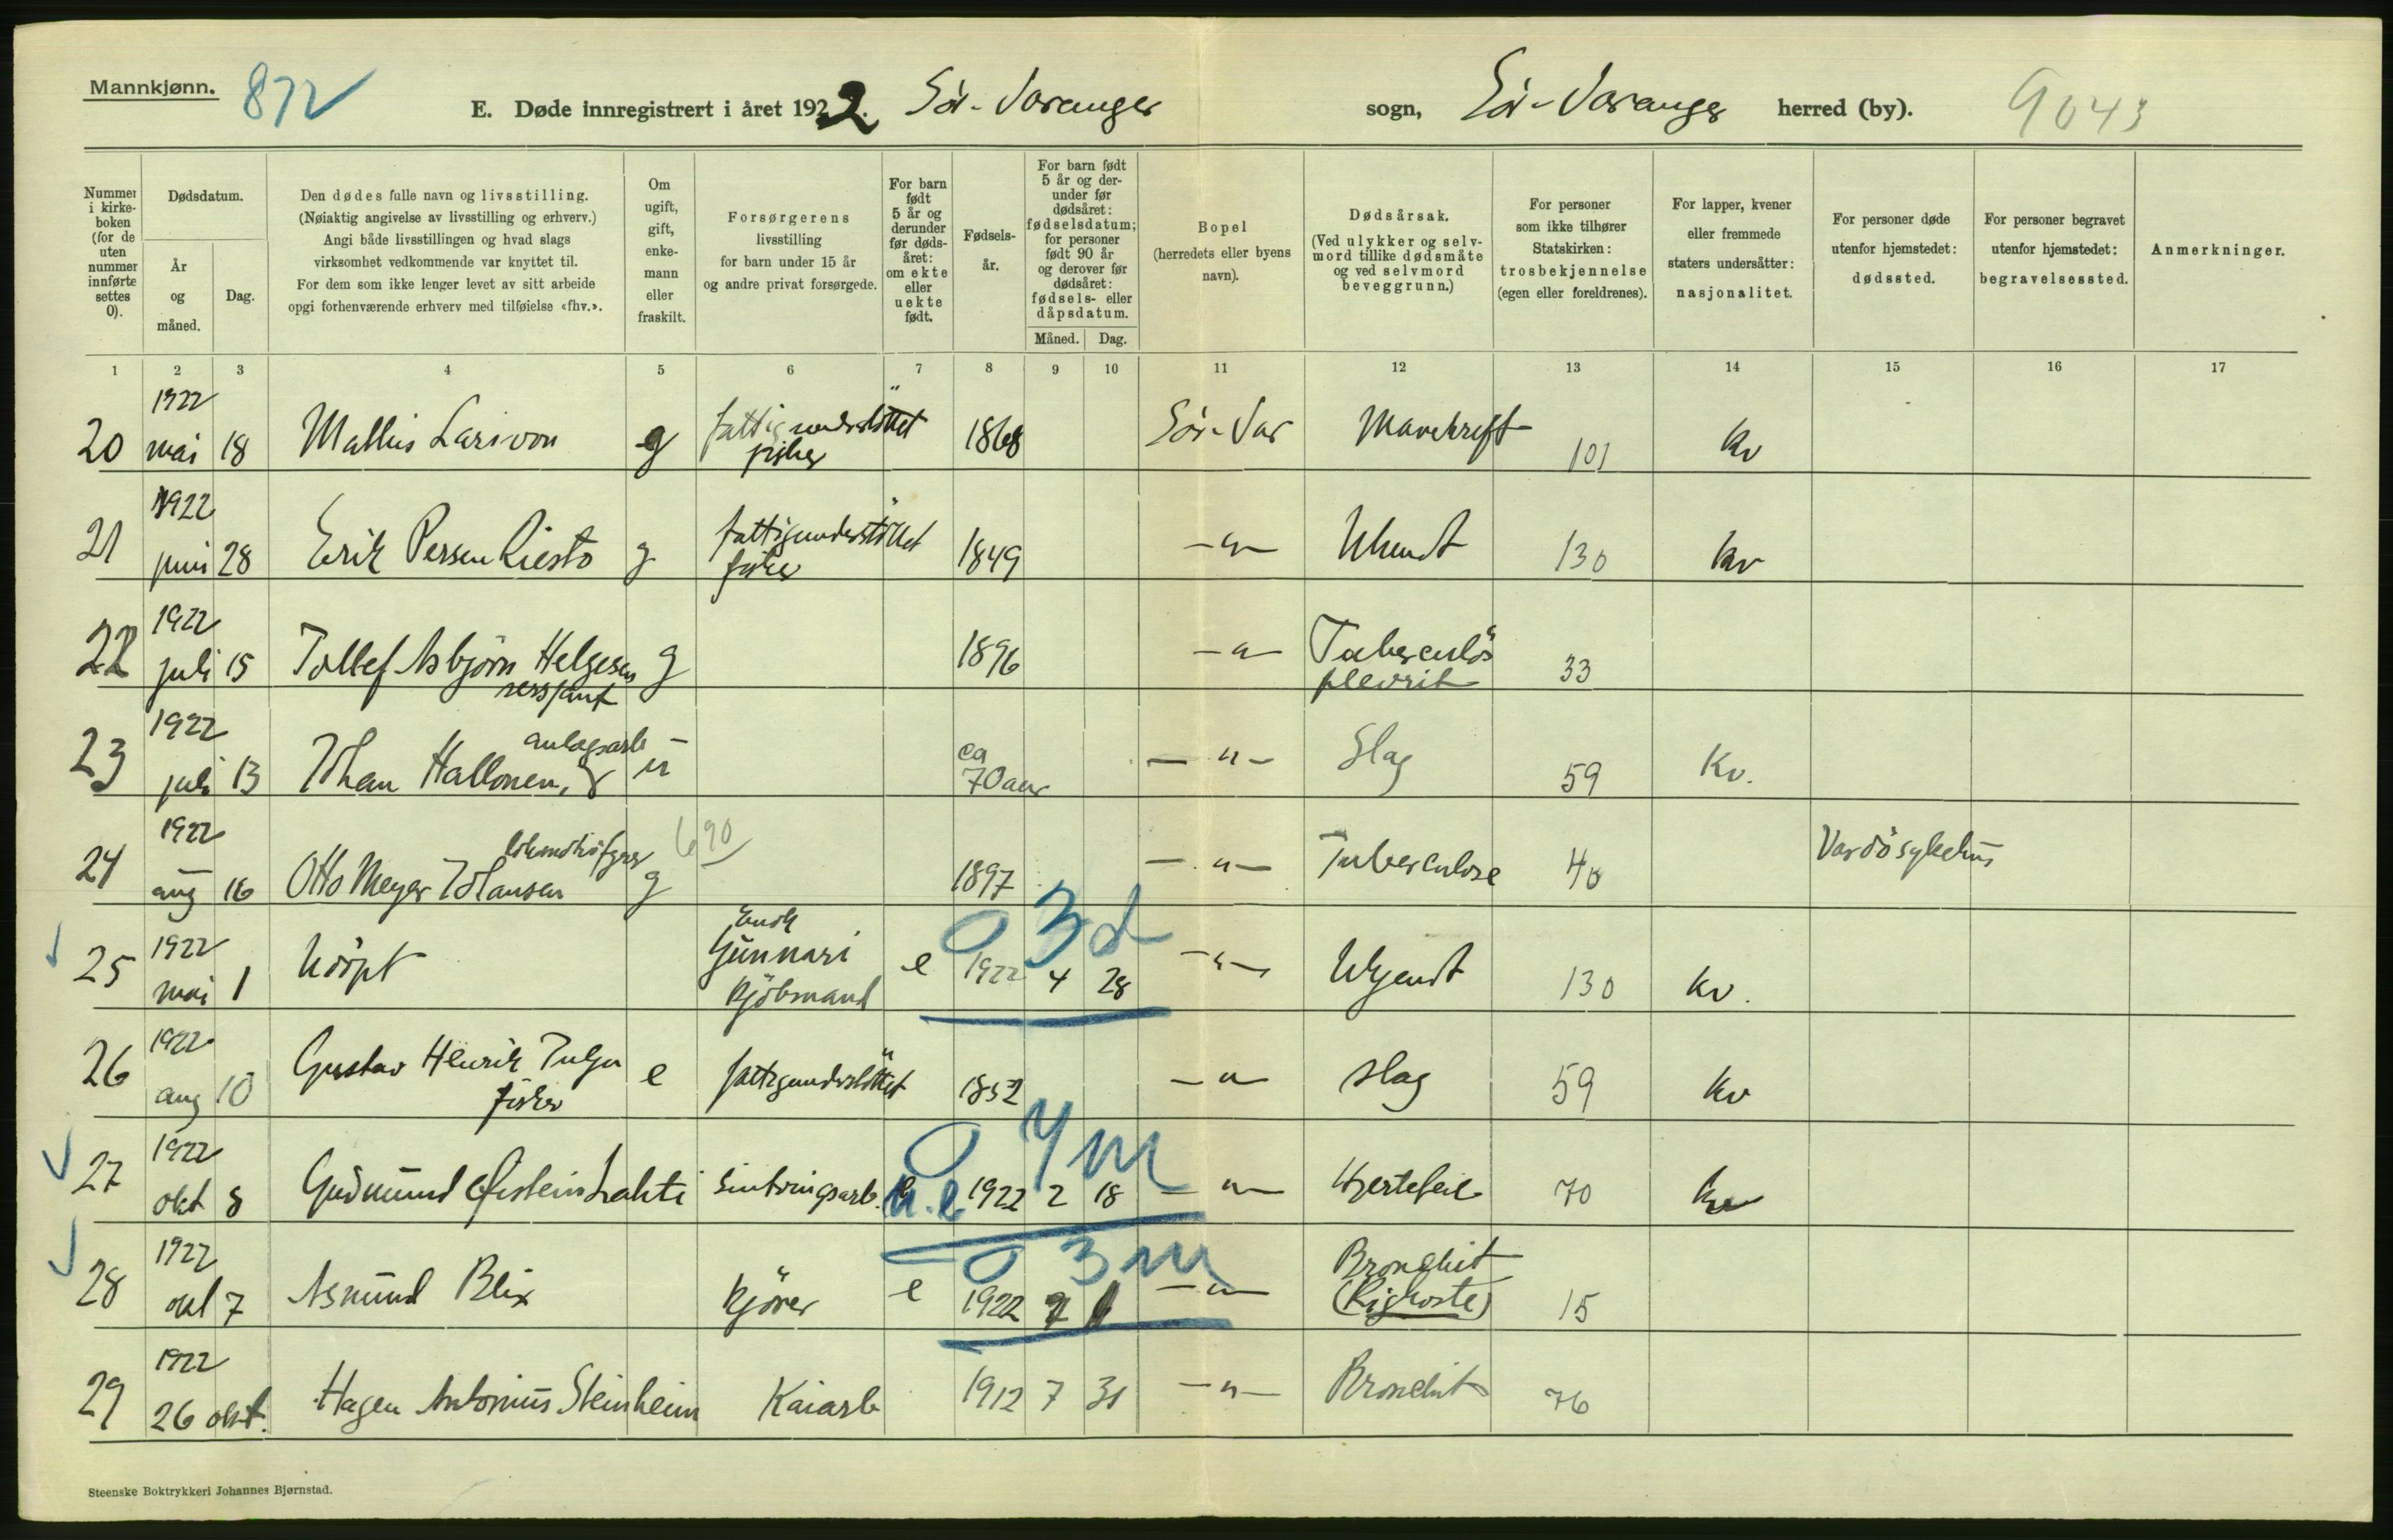 Mannkjønn.
872
E. Døde innregistrert i året 1922. Sör-Varanger sogn, Sör-Varanger herred (by).
9043
Nummer i kirke-boken (for de uten nummer innførte settes 0).
Dødsdatum.
År og måned.
Dag.
Den dødes fulle navn og livsstilling.
(Nøiaktig angivelse av livsstilling og erhverv.)
Angi både livsstillingen og hvad slags
virksomhet vedkommende var knyttet til.
For dem som ikke lenger levet av sitt arbeide
opgi forhenværende erhverv med tilføielse «fhv.».
Om ugift, gift, enke-mann eller fraskilt.
Forsørgerens
livsstilling
for barn under 15 år
og andre privat forsørgede.
For barn født 5 år og derunder før døds-året: om ekte eller uekte født.
Fødsels-år.
For barn født 5 år og der-under før dødsåret: fødselsdatum; for personer født 90 år og derover før dødsåret: fødsels- eller dåpsdatum.
Måned.
Dag.
Bopel
(herredets eller byens
navn).
Dødsårsak.
(Ved ulykker og selv-
mord tillike dødsmåte
og ved selvmord
beveggrunn.)
For personer
som ikke tilhører
Statskirken:
trosbekjennelse
(egen eller foreldrenes).
For lapper, kvener
eller fremmede
staters undersåtter:
nasjonalitet.
For personer døde
utenfor hjemstedet:
dødssted.
For personer begravet
utenfor hjemstedet:
begravelsessted.
Anmerkninger.
1 2 3 4 5 6 7 8 9 10 11 12 13 14 15 16 17
1922
20 mai 18 Mathis Larivon g fattigunderstöttet fisker 1868 Sör-Var Mavekreft 101 kv
1922
21 juni 28 Erik Persen Riesto g fattigunderstöttet fisker 1849 -"- Ukendt 130 kv
1922
22 juli 15 Tollef Asbjörn Helgesen g 1896 -"- Tuberculös plevrit 33
sersjant
1922
23 juli 13 Johan Hallonen, anlægsarb u ca 70 aar -"- Slag 59 Kv.
1922
24 aug 16 Otto Meyer Johansen g 690 1897 -"- Tuberculose 40 Vardö sykehus
1922
25 mai 1 Udöpt Gunnari kjöbmand e 1922 4 28 -"- Ukjendt 130 kv.
0 3 d
1922
26 aug 10 Gustav Henrik e fattigunderstöttet 1852 -"- slag 59 kv
fisker
1922
27 okt 8 Gudmund Øistein Lahti Sintringsarb. u.e. 1922 2 18 -"- Hjertefeil 70 kv
0 7 m
1922
28 okt 7 Asmund Blix kjörer e 1922 -"- Bronchit (Kighoste) 15
0 3 m
1922
29 26 okt. Hagen Antonius Steinheim Kaiarb 1912 7 31 -"- Bronchit 76
Steenske Boktrykkeri Johannes Bjørnstad.